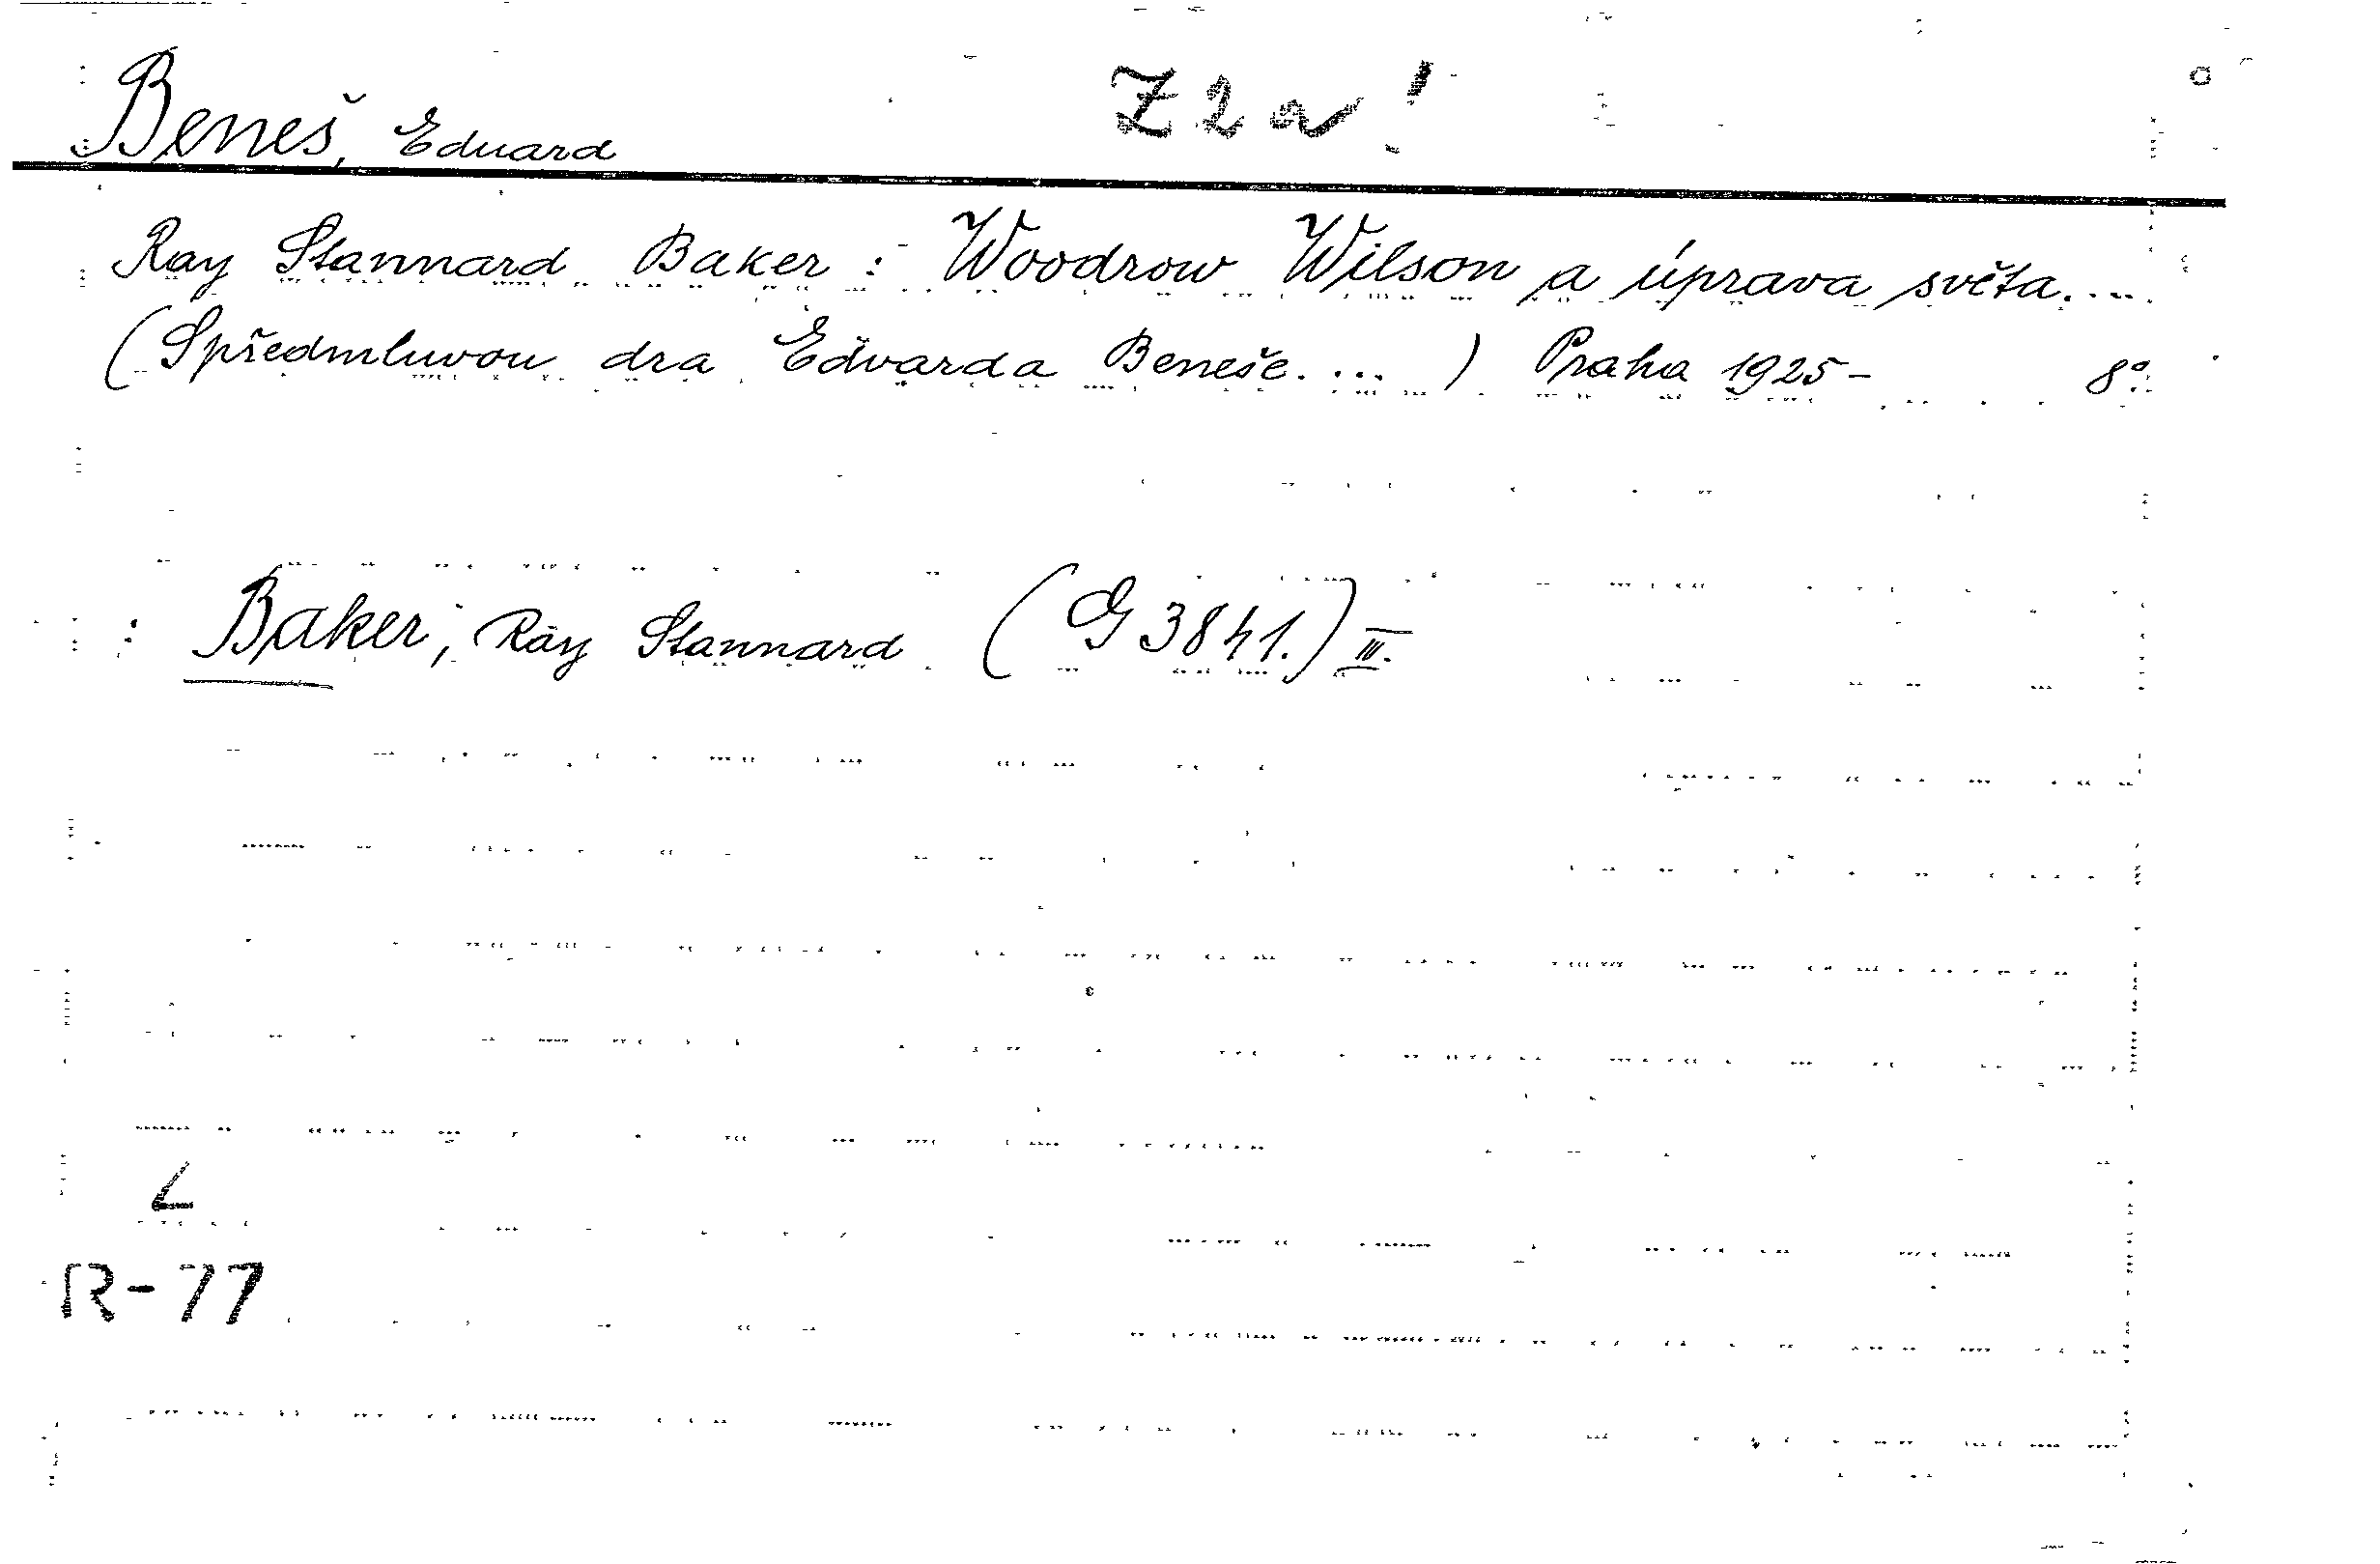 Beneš, Eduard Z 2 a !
Ray Stannard Baker : Woodrow Wilson a úprava světa....
(S předmluvou dra Edvarda Beneše. ... ) Praha 1925- 8°.
: Baker, Ray Stannard (G 3841.) IV.
L
R-77